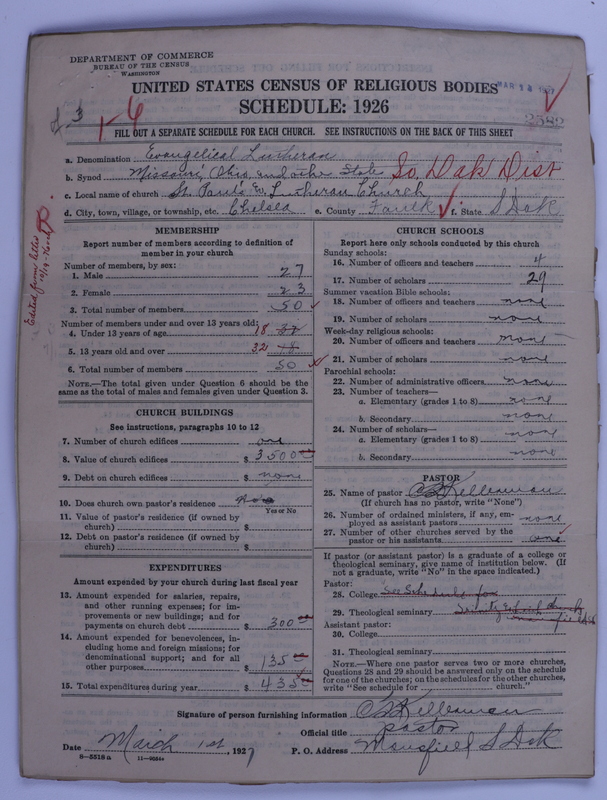 DEPARTMENT OF COMMERCE
BUREAU OF THE CENSUS
WASHINGTON
UNITED STATES CENSUS OF RELIGIOUS BODIES
SCHEDULE: 1926
MAR 14 1927
2582
1-6
FILL OUT A SEPARATE SCHEDULE FOR EACH CHURCH. SEE INSTRUCTIONS ON THE BACK OF THIS SHEET
a. Denomination Evangelical Lutheran
b. Synod Missouri, Ohio, and other State So. Dak Dist
c. Local name of church St. Paul's Ev. Lutheran Church
d. City, town, village, or township, etc. Chelsea e. County Faulk f. State S Dak
Edited from letter
MEMBERSHIP
Report number of members according to definition of member in your church
Number of members, by sex:
1. Male 27
2. Female 23
3. Total number of members 50
Number of members under and over 13 years old:
4. Under 13 years of age 18
5. 13 years old and over 32
6. Total number of members 50
NOTE.—The total given under Question 6 should be the same as the total of males and females given under Question 3.
CHURCH BUILDINGS
See instructions, paragraphs 10 to 12
7. Number of church edifices one
8. Value of church edifices $ 3500 00
9. Debt on church edifices $ none
10. Does church own pastor's residence
Yes or No
11. Value of pastor's residence (if owned by church) $
12. Debt on pastor's residence (if owned by church) $
EXPENDITURES
Amount expended by your church during last fiscal year
13. Amount expended for salaries, repairs, and other running expenses; for improvements or new buildings; and for payments on church debt $ 300 00
14. Amount expended for benevolences, including home and foreign missions; for denominational support; and for all other purposes $ 135 00
15. Total expenditures during year $ 435 00
CHURCH SCHOOLS
Report here only schools conducted by this church
Sunday schools:
16. Number of officers and teachers 4
17. Number of scholars 29
Summer vacation Bible schools:
18. Number of officers and teachers none
19. Number of scholars none
Week-day religious schools:
20. Number of officers and teachers none
21. Number of scholars none
Parochial schools:
22. Number of administrative officers none
23. Number of teachers—
a. Elementary (grades 1 to 8) none
b. Secondary none
24. Number of scholars—
a. Elementary (grades 1 to 8) none
b. Secondary none
PASTOR
25. Name of pastor Kelleman
(If church has no pastor, write "None")
26. Number of ordained ministers, if any, employed as assistant pastors none
27. Number of other churches served by the pastor or his assistants one
If pastor (or assistant pastor) is a graduate of a college or theological seminary, give name of institution below. (If not a graduate, write "No" in the space indicated.)
Pastor:
28. College See Schedule for
29. Theological seminary Trinity church
Mansfield
Assistant pastor:
30. College
31. Theological seminary
NOTE.—Where one pastor serves two or more churches, Questions 28 and 29 should be answered only on the schedule for one of the churches; on the schedules for the other churches, write "See schedule for church."
Signature of person furnishing information Kelleman
Official title pastor
Date March 1st, 1927 P. O. Address Mansfield S Dak
8—5518 a